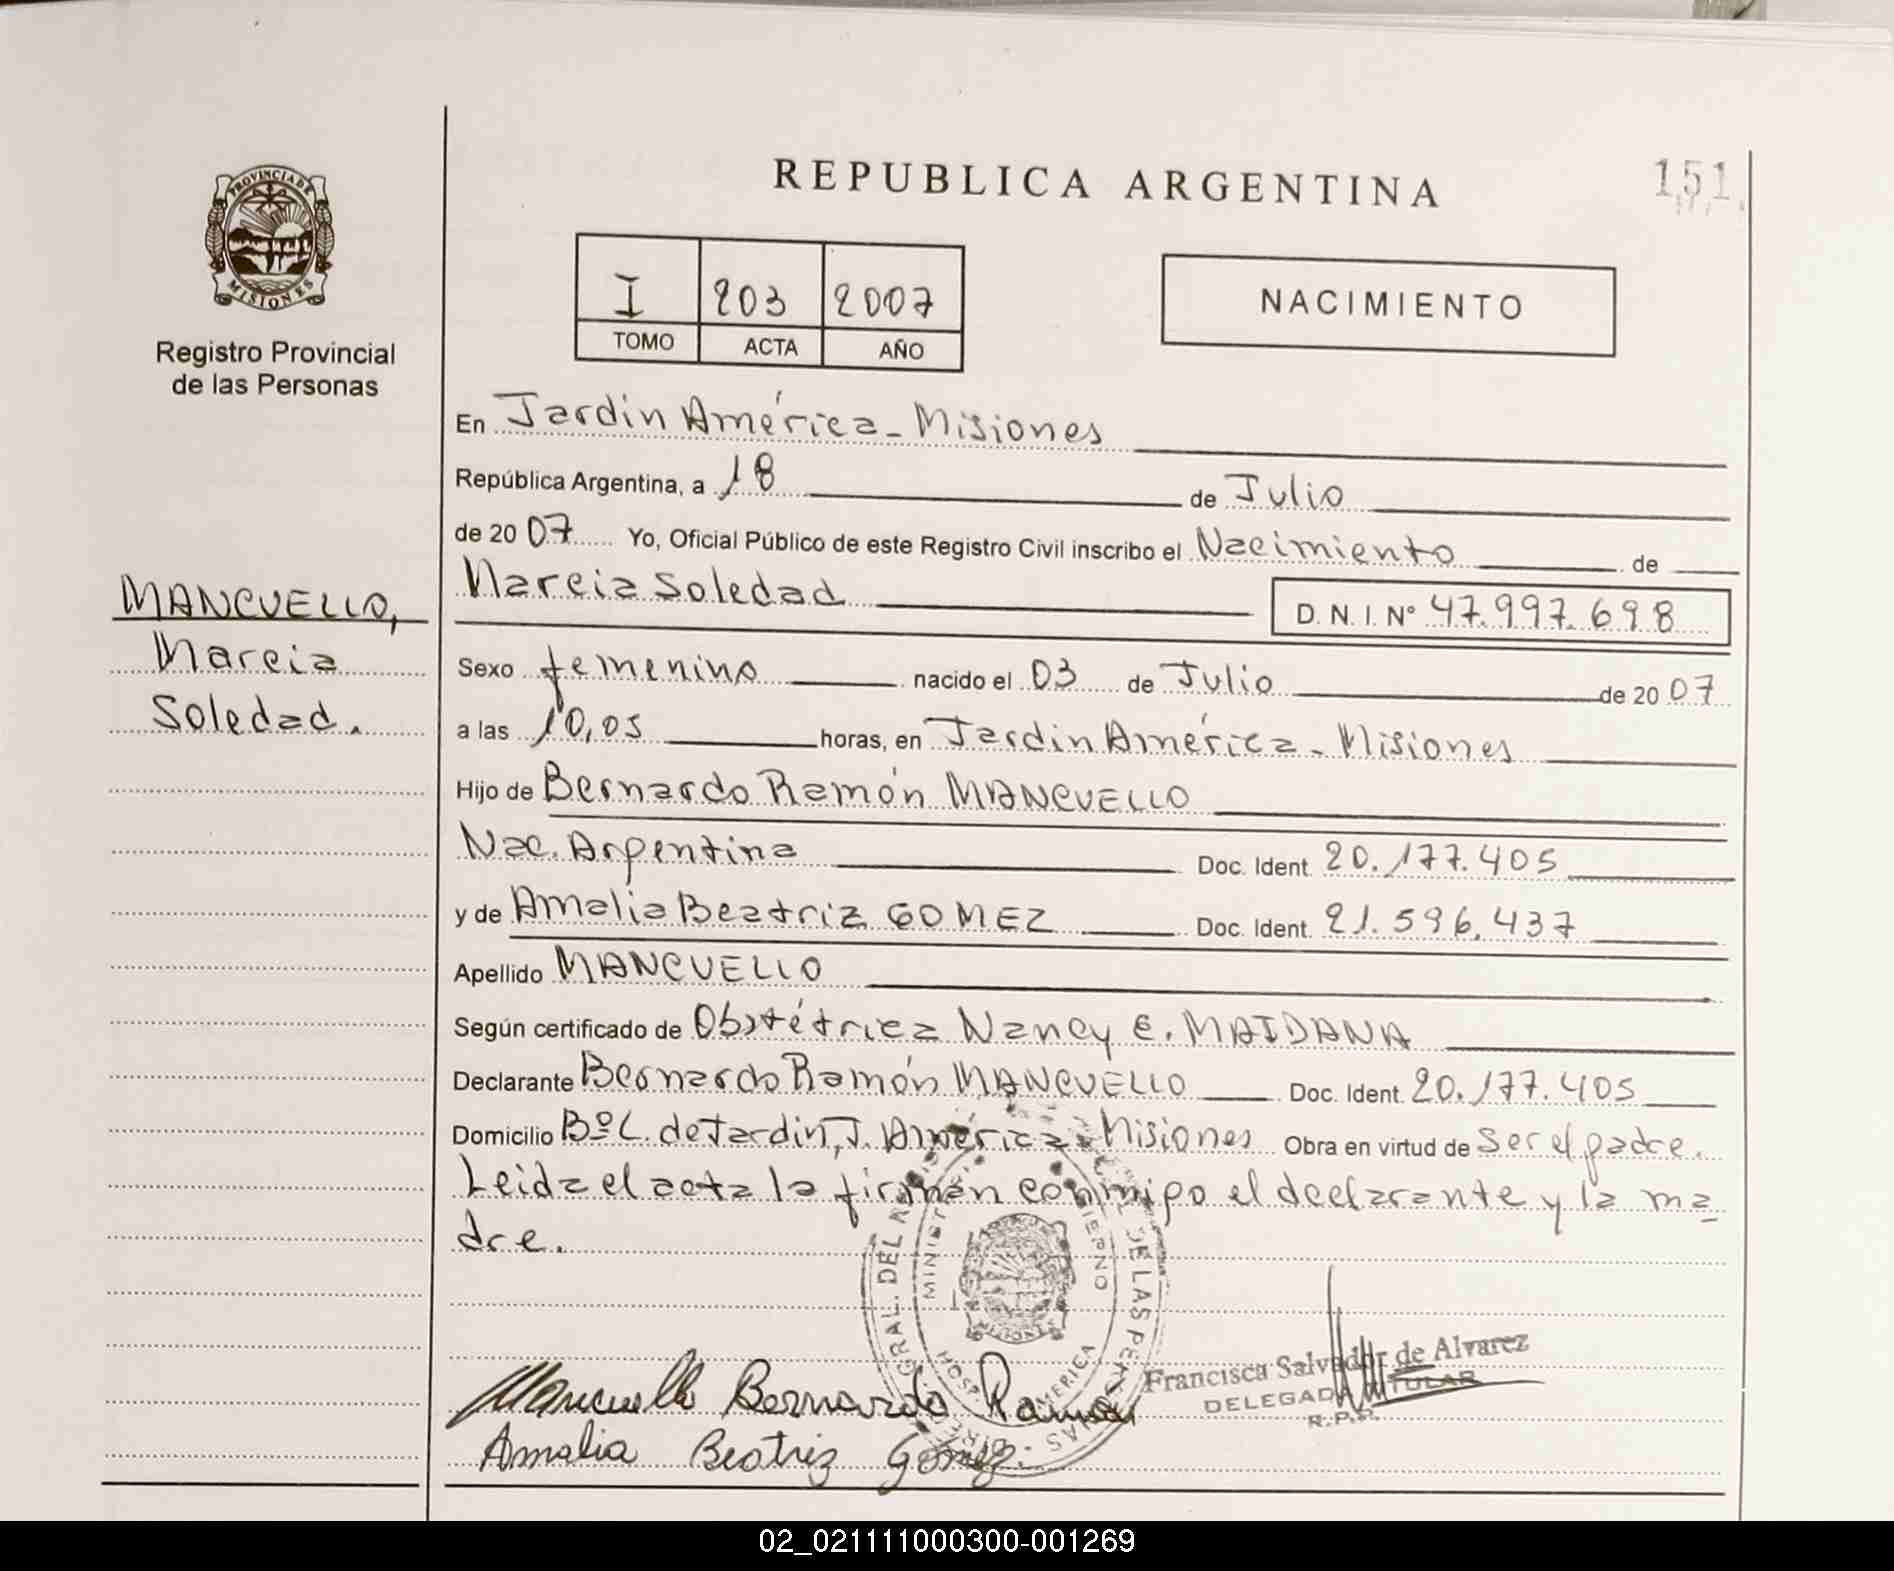 REPUBLICA ARGENTINA
151
PROVINCIA DE
MISIONES
Registro Provincial
de las Personas
I 203 2007
TOMO ACTA AÑO
NACIMIENTO
En Jardin América - Misiones
República Argentina, a 18 de Julio
de 20 07 Yo, Oficial Público de este Registro Civil inscribo el Nacimiento de
Marcia Soledad D. N. I. Nº 47.997.698
MANCUELLO,
Marcia
Soledad.
Sexo femenino nacido el 03 de Julio de 20 07
a las 10,05 horas, en Jardin América - Misiones
Hijo de Bernardo Ramón MANCUELLO
Nac. Argentina Doc. Ident. 20.177.405
y de Amalia Beatriz GOMEZ Doc. Ident. 21.596.437
Apellido MANCUELLO
Según certificado de Obstétrica Nancy E. MAIDANA
Declarante Bernardo Ramón MANCUELLO Doc. Ident. 20.177.405
Domicilio Bº C. de Jardin, J. América - Misiones Obra en virtud de ser el padre.
Leida el acta la firman conmigo el declarante y la ma
dre.
Mancuello Bernardo Ramon
Amalia Beatriz Gomez.
Francisca Salvador de Alvarez
DELEGADA TITULAR
R.P.P.
02_021111000300-001269